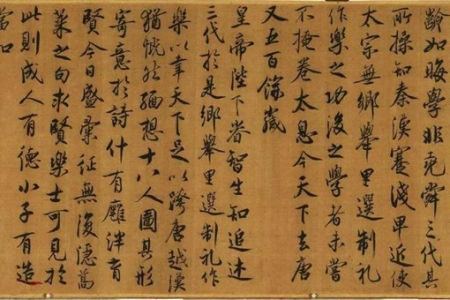 齡如晦學非堯舜三代其
所操知秦漢蹇淺卑近使
太宗無鄉舉里選制礼
作樂之功後之學者未嘗
不掩卷太息今天下去唐
又五百餘歲
皇帝陛下睿智生知追述
三代於是鄉舉里選制礼作
樂以幸天下足以跨唐越漢
猶慨然緬想十八人圖其形
寄意於詩什有廱泮育
賢今日盛彙征無復隱蒿
萊之句求賢樂士可見於
此則成人有德小子有造